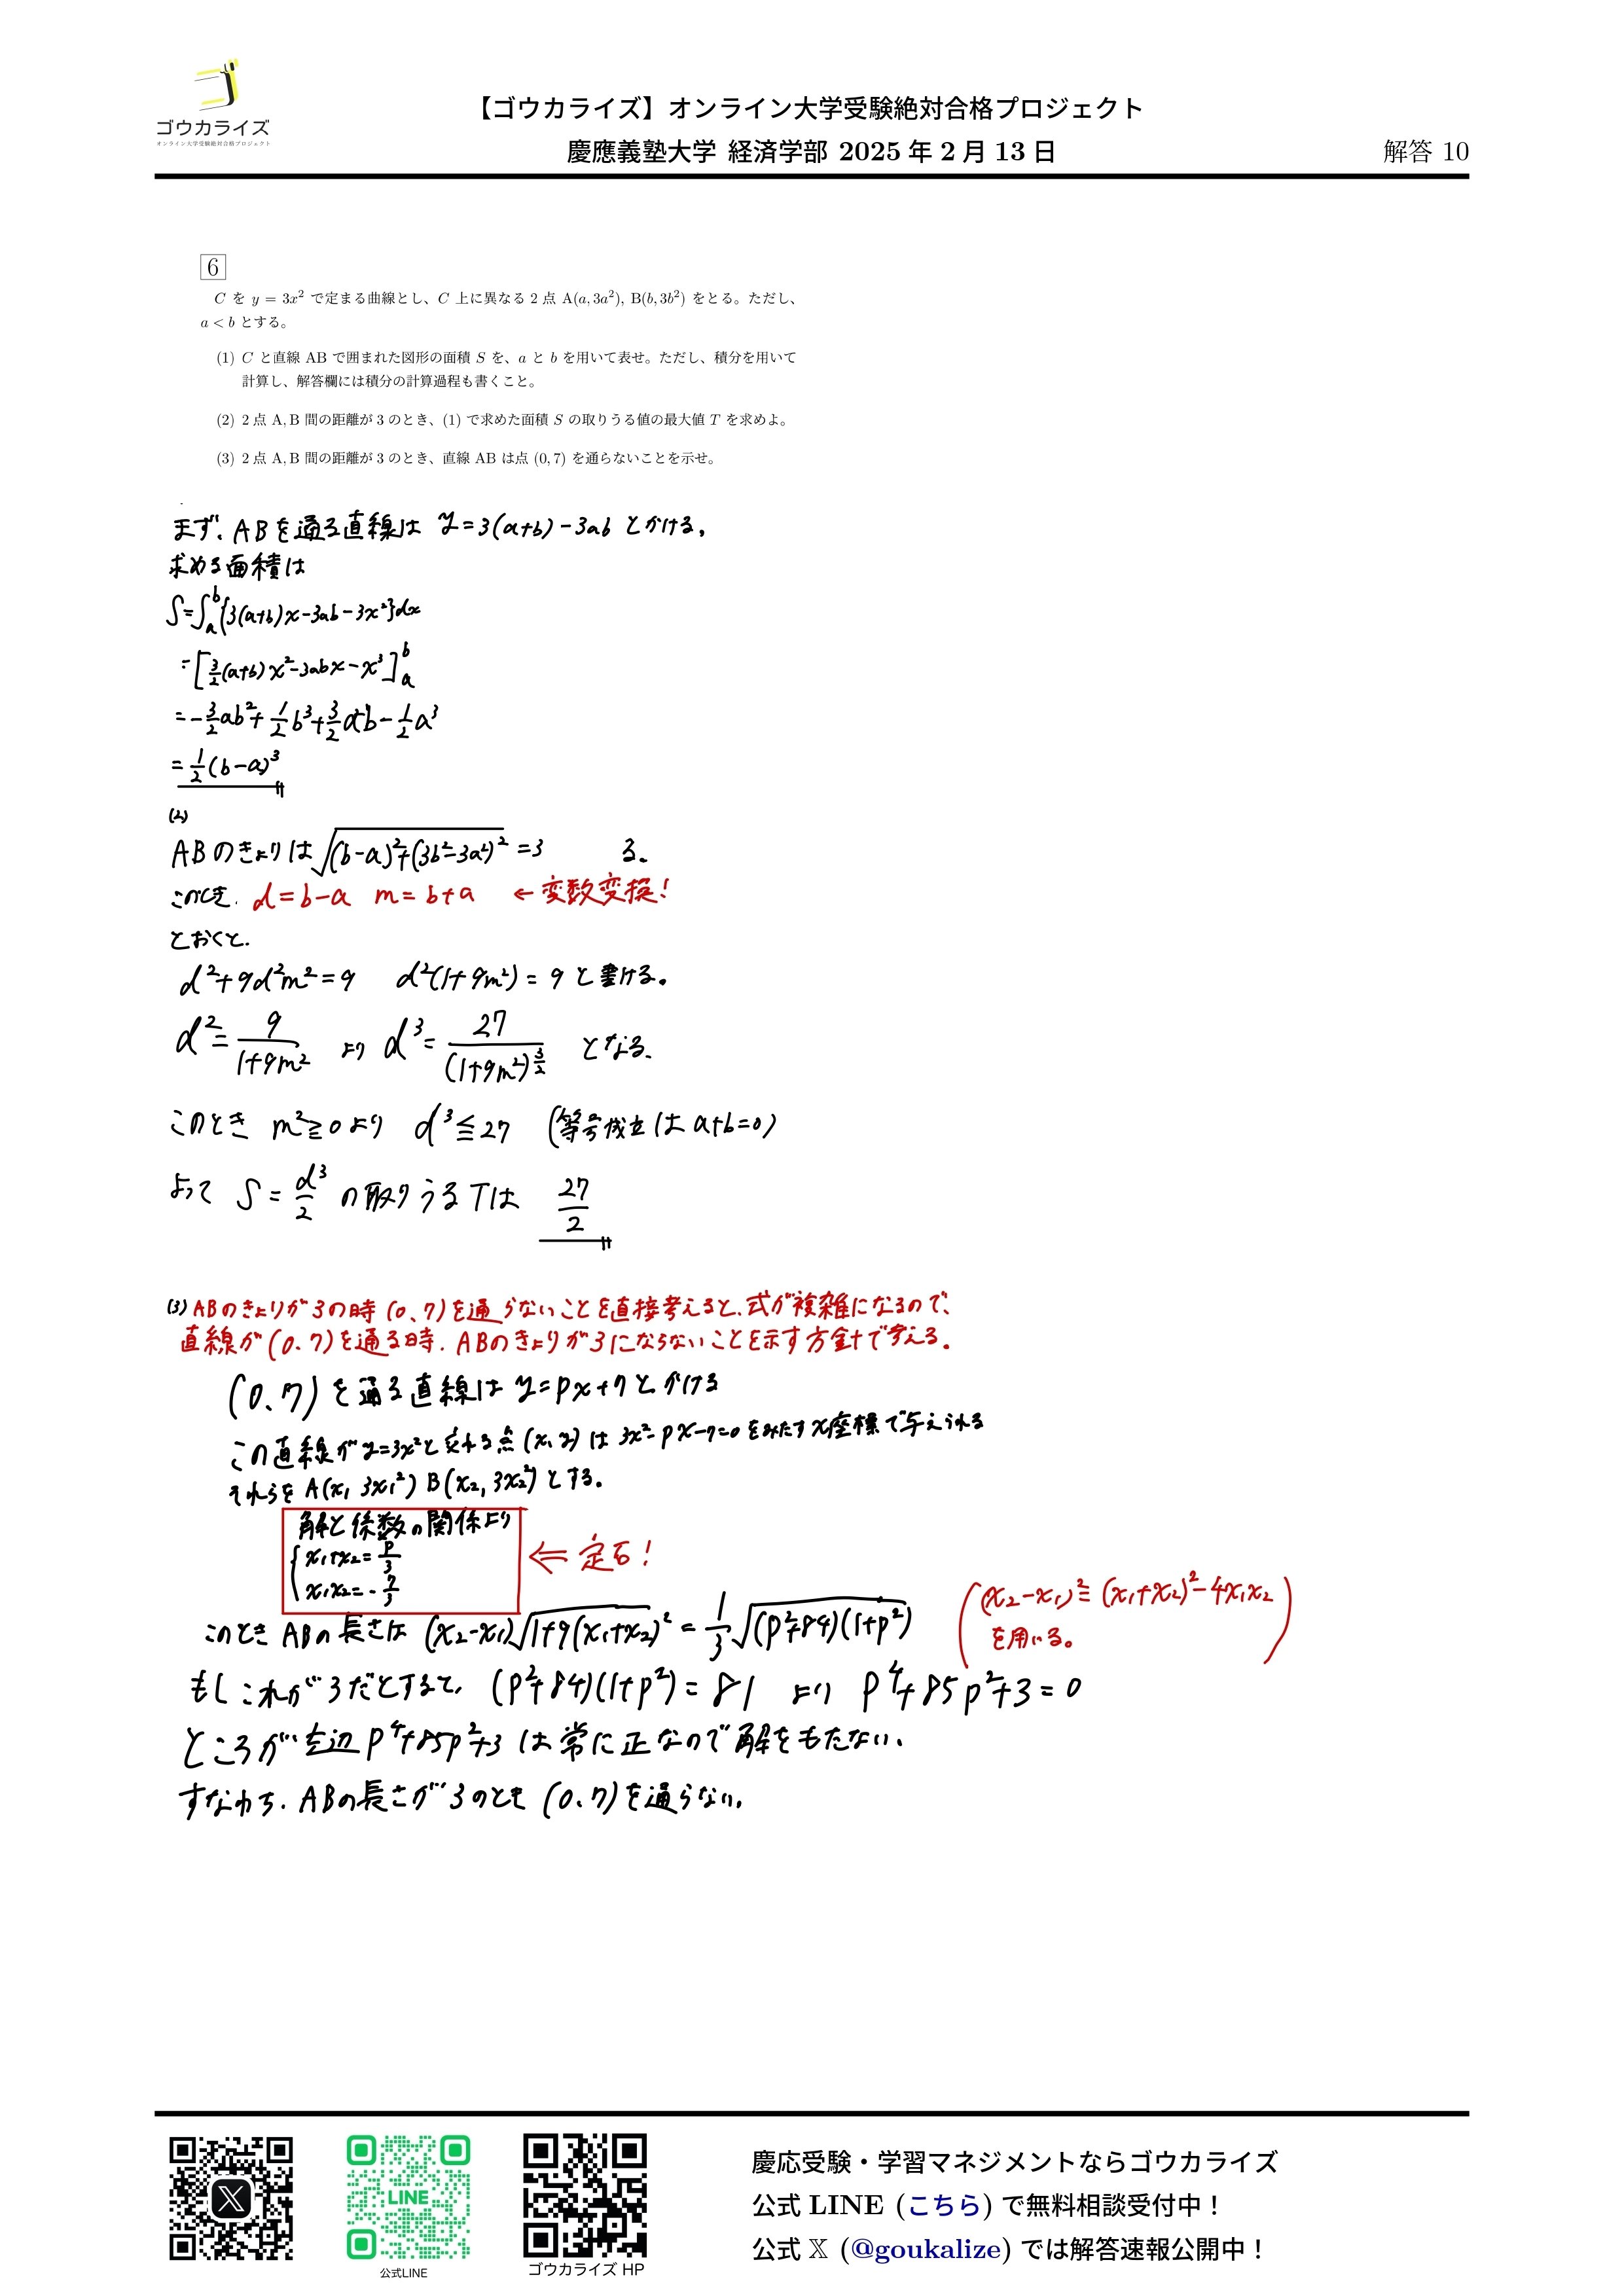 ゴウカライズ
オンライン大学受験絶対合格プロジェクト
【ゴウカライズ】オンライン大学受験絶対合格プロジェクト
慶應義塾大学 経済学部 2025 年 2 月 13 日
解答 10
6
C を y = 3x² で定まる曲線とし、C 上に異なる 2 点 A(a, 3a²), B(b, 3b²) をとる。ただし、
a < b とする。
(1) C と直線 AB で囲まれた図形の面積 S を、a と b を用いて表せ。ただし、積分を用いて
計算し、解答欄には積分の計算過程も書くこと。
(2) 2 点 A, B 間の距離が 3 のとき、(1) で求めた面積 S の取りうる値の最大値 T を求めよ。
(3) 2 点 A, B 間の距離が 3 のとき、直線 AB は点 (0, 7) を通らないことを示せ。
まず、ABを通る直線は y=3(a+b)-3ab とかける。
求める面積は
S=∫_a^b{3(a+b)x-3ab-3x²}dx
=[3/2(a+b)x²-3abx-x³]_a^b
=-3/2ab²+1/2b³+3/2a²b-1/2a³
=1/2(b-a)³
(2)
ABのきょりは√((b-a)²+(3b²-3a²)²)=3 る。
このとき. d=b-a m=b+a ←変数変換!
とおくと.
d²+9d²m²=9 d²(1+9m²)=9 と書ける。
d²=9/(1+9m²) より d³=27/(1+9m²)^(3/2) となる.
このとき m²≧0より d³≦27 (等号成立は a+b=0)
よって S=d³/2 の取りうるTは 27/2
(3) ABのきょりが3の時(0、7)を通らないことを直接考えると、式が複雑になるので、
直線が(0、7)を通る時、ABのきょりが3にならないことを示す方針で考える。
(0、7)を通る直線は y=px+7とかける
この直線がy=3x²と交わる点(x、y)は 3x²-px-7=0をみたすx座標で与えられる
それらを A(x₁, 3x₁²) B(x₂, 3x₂²)とする。
解と係数の関係より
x₁+x₂=p/3
x₁x₂=-7/3
⇐ 定石!
このとき ABの長さは (x₂-x₁)√(1+9(x₁+x₂)²)=1/3√((p²+84)(1+p²))
((x₂-x₁)²=(x₁+x₂)²-4x₁x₂
を用いる。)
もしこれが3だとすると、(p²+84)(1+p²)=81 より p⁴+85p²+3=0
ところが左辺 p⁴+85p²+3 は常に正なので解をもたない.
すなわち、ABの長さが3のとき(0、7)を通らない.
LINE
公式LINE
ゴウカライズ HP
慶応受験・学習マネジメントならゴウカライズ
公式 LINE (こちら) で無料相談受付中!
公式 𝕏 (@goukalize) では解答速報公開中!